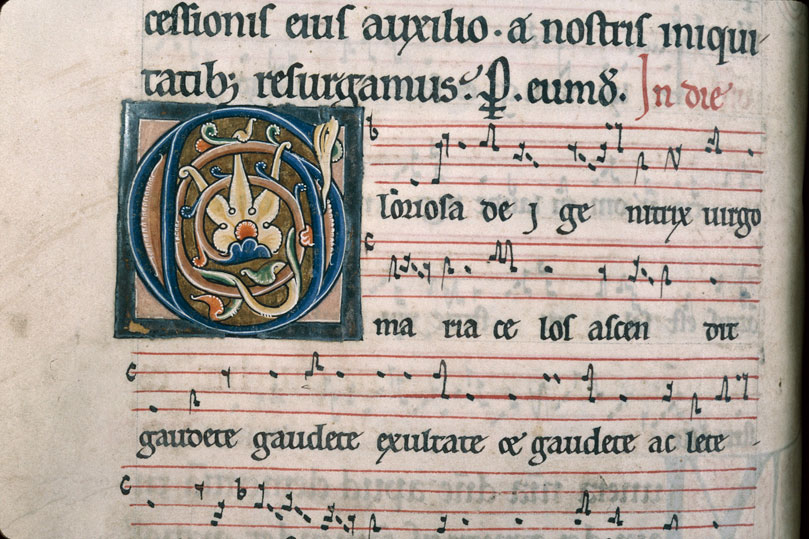 cessionis eius auxilio · a nostris iniqui-
tatib; resurgamus. P. eumd̄. In die
Gloriosa de i ge nitrix uirgo
ma ria ce los ascen dit
gaudete gaudete exultate & gaudete ac lete-